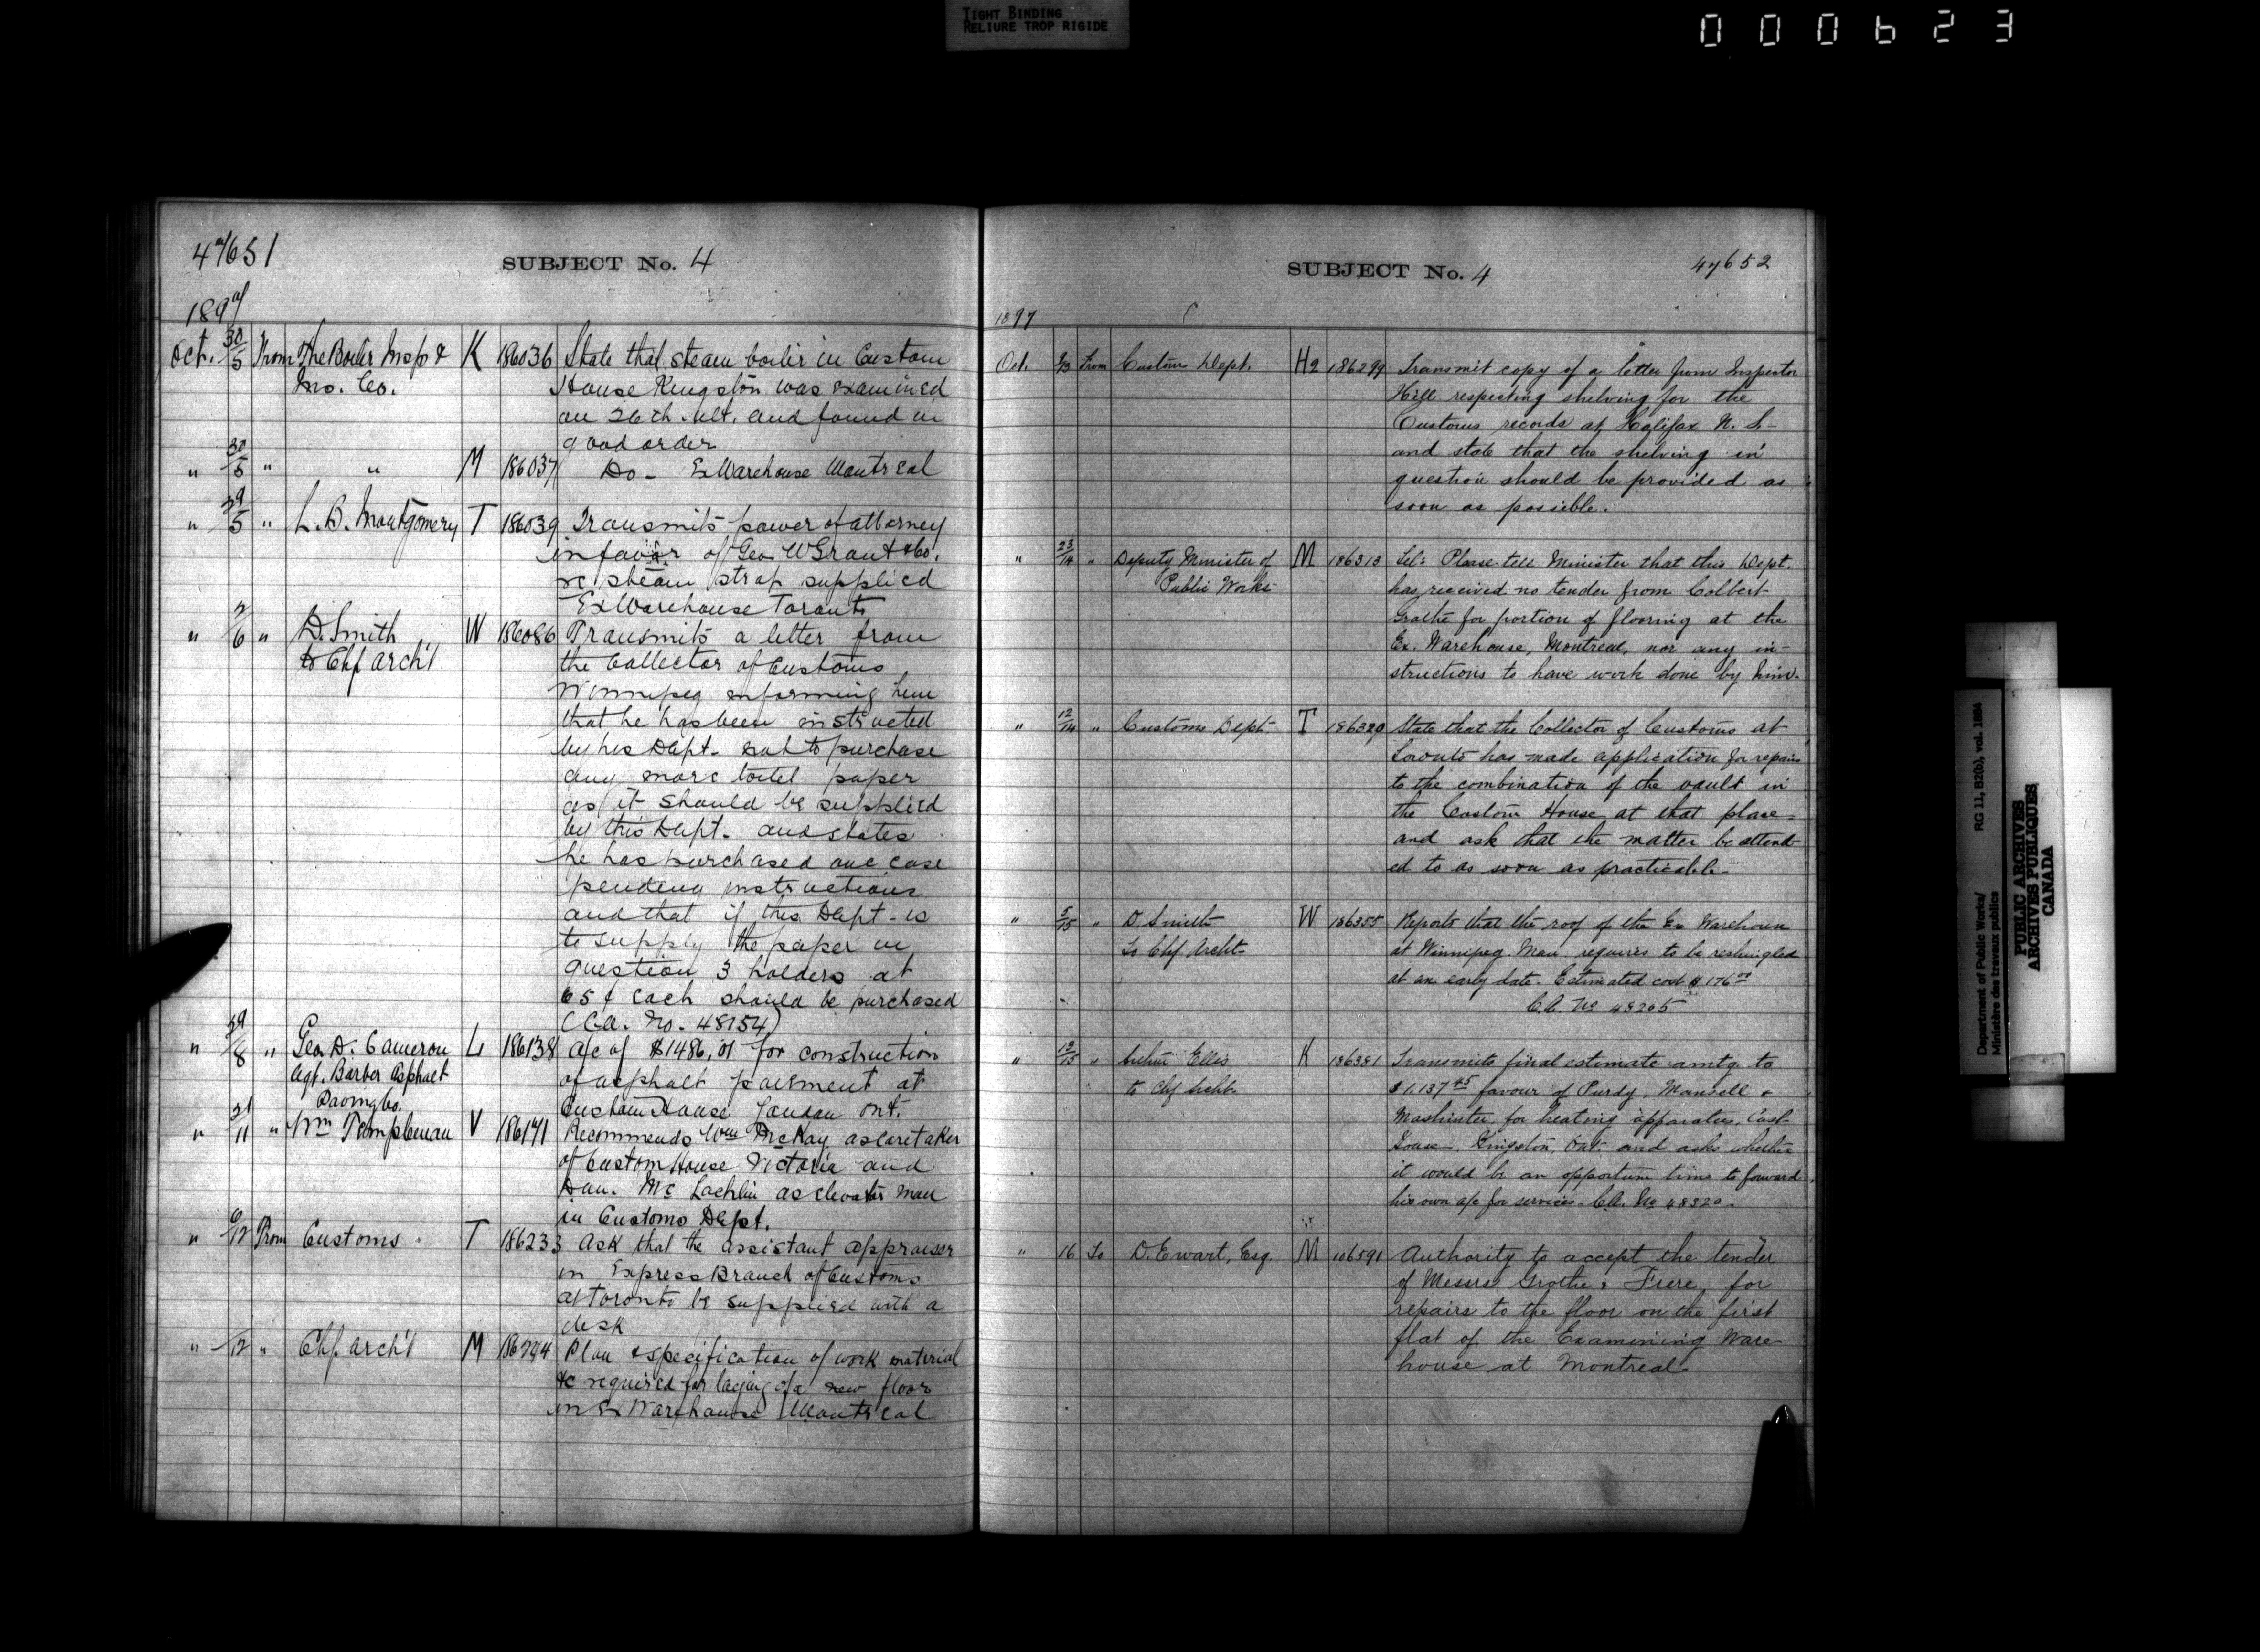 TIGHT BINDING
RELIURE TROP RIGIDE
000623
47651
SUBJECT No. 4
1897
Oct. 30/5 From The Boiler Insp & K 186036 State that steam boiler in Custom
Ins. Co. House Kingston was examined
on 26th ult. and found in
good order
" 30/5 " " M 186037 Do - Ex Warehouse Montreal
" 29/5 " L. B. Montgomery T 186039 Transmits power of attorney
in favor of Geo W Grant & Co.
re steam strap supplied
Ex Warehouse Toronto
" 2/6 " D. Smith W 186086 Transmits a letter from
to Chf Arch't the Collector of Customs
Winnipeg informing him
that he has been instructed
by his Dept. not to purchase
any more toilet paper
as it should be supplied
by this Dept. and states
he has purchased one case
pending instructions
and that if this Dept. is
to supply the paper in
question 3 holders at
65¢ each should be purchased
(C.A. No. 48154)
" 29/8 " Geo. D. Cameron L 186138 a/c of $1486.01 for construction
Agt. Barber Asphalt of asphalt pavement at
Paving Co. Custom House London Ont.
" 21/11 " Wm Templeman V 186171 Recommends Wm McKay as caretaker
of Custom House Victoria and
Dun. McLachlin as elevator man
in Customs Dept.
" 6/12 From Customs T 186233 Ask that the assistant appraiser
in Express Branch of Customs
at Toronto be supplied with a
desk
" /12 " Chf. Arch't M 186244 Plan & specification of work material
&c required for laying of a new floor
in Ex Warehouse Montreal
SUBJECT No. 4
47652
1897
Oct. /13 From Customs Dept. H2 186299 Transmit copy of a letter from Inspector
Hill respecting shelving for the
Customs records at Halifax N. S-
and state that the shelving in
question should be provided as
soon as possible.
" 23/14 " Deputy Minister of M 186313 Tel: Please tell Minister that this Dept.
Public Works has received no tender from Colbert
Grothé for portion of flooring at the
Ex. Warehouse, Montreal, nor any in-
structions to have work done by him.
" 12/14 " Customs Dept T 186320 State that the Collector of Customs at
Toronto has made application for repairs
to the combination of the vault in
the Custom House at that place-
and ask that the matter be attend-
ed to as soon as practicable-
" 5/15 " D. Smith W 186355 Reports that the roof of the Ex Warehouse
To Chf Archt- at Winnipeg. Man. requires to be reshingled
at an early date. Estimated cost $176.00
C.A. No 48205
" 12/15 " Ellis K 186381 Transmits final estimate amtg to
to Chf Archt- $1,137.45 favour of Purdy, Mansell &
Mashinter for heating apparatus, Cust-
House, Kingston, Ont. and asks whether
it would be an opportune time to forward
his own a/c for services- C.A. No 48320-
" 16 To D. Ewart, Esq. M 186591 Authority to accept the tender
of Messrs Grothé & Frere, for
repairs to the floor on the first
flat of the Examining Ware-
house at Montreal-
Department of Public Works/ RG 11, B2(b), vol. 1884
Ministère des travaux publics
PUBLIC ARCHIVES
ARCHIVES PUBLIQUES
CANADA